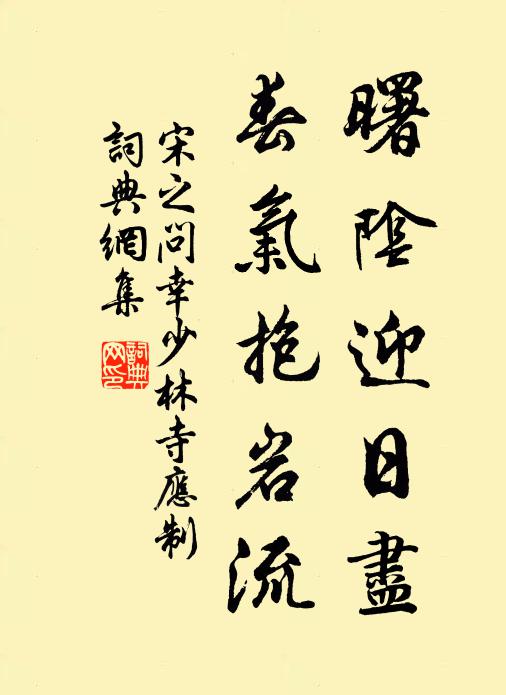 曙陰迎日盡
春氣抱岩流
宋之问幸少林寺應制
詞典網集
詞典網印